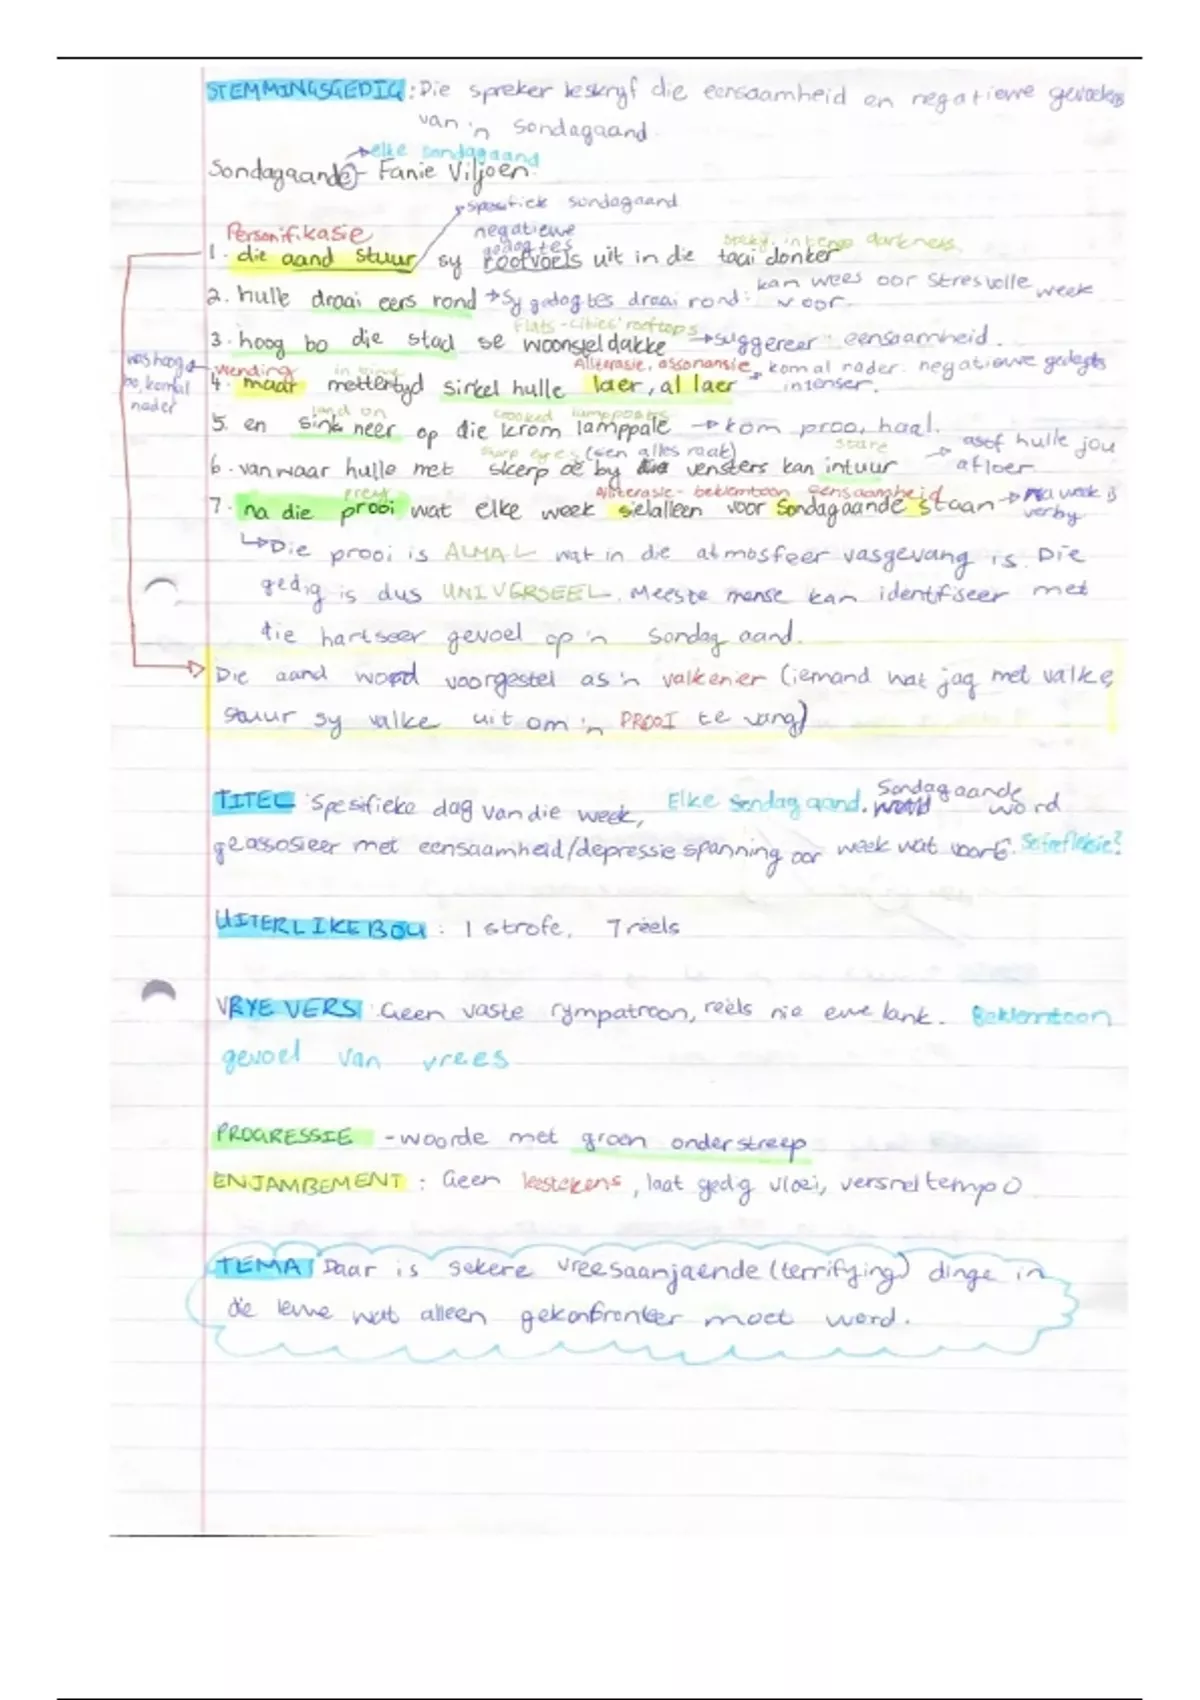 STEMMINGSGEDIG: Die spreker beskryf die eensaamheid en negatiewe gevoelens
van 'n Sondagaand.
elke sondagaand
Sondagaande - Fanie Viljoen.
spesifiek sondagaand
Personifikasie negatiewe
gedagtes intense darkness.
1. die aand stuur sy roofvoels uit in die taai donker
kan wees oor stresvolle week
2. hulle draai eers rond → Sy gedagtes draai rond: voor.
flats - cities' rooftops
3. hoog bo die stad se woonsteldakke → suggereer eensaamheid.
was hoog
bo, kom al
nader
wending in time Alliterasie, assonansie → kom al nader. negatiewe gedagtes
4. maar mettertyd sirkel hulle laer, al laer intenser.
land on crooked lampposts
5. en sink neer op die krom lamppale → kom prooi haal.
sharp eyes (sien alles raak) stare → asof hulle jou
6. vanwaar hulle met skerp oë by die vensters kan intuur afloer
prey Alliterasie - beklemtoon eensaamheid
7. na die prooi wat elke week sielalleen voor Sondagaande staan → Na week is
verby.
↳ Die prooi is ALMAL wat in die atmosfeer vasgevang is. Die
gedig is dus UNIVERSEEL. Meeste mense kan identifiseer met
die hartseer gevoel op 'n Sondag aand.
Die aand word voorgestel as 'n valkenier (iemand wat jag met valke,
stuur sy valke uit om 'n PROOI te vang)
TITEL: Spesifieke dag van die week, Elke Sondagaand. Sondagaande word
geassosieer met eensaamheid/depressie spanning oor week wat voorlê. Selfrefleksie?
UITERLIKE BOU: 1 strofe, 7 reëls
VRYE VERS: Geen vaste rympatroon, reëls nie ewe lank. Beklemtoon
gevoel van vrees
PROGRESSIE - woorde met groen onderstreep
ENJAMBEMENT: Geen leestekens, laat gedig vloei, versnel tempo
TEMA: Daar is sekere vreesaanjaende (terrifying) dinge in
die lewe wat alleen gekonfronteer moet word.